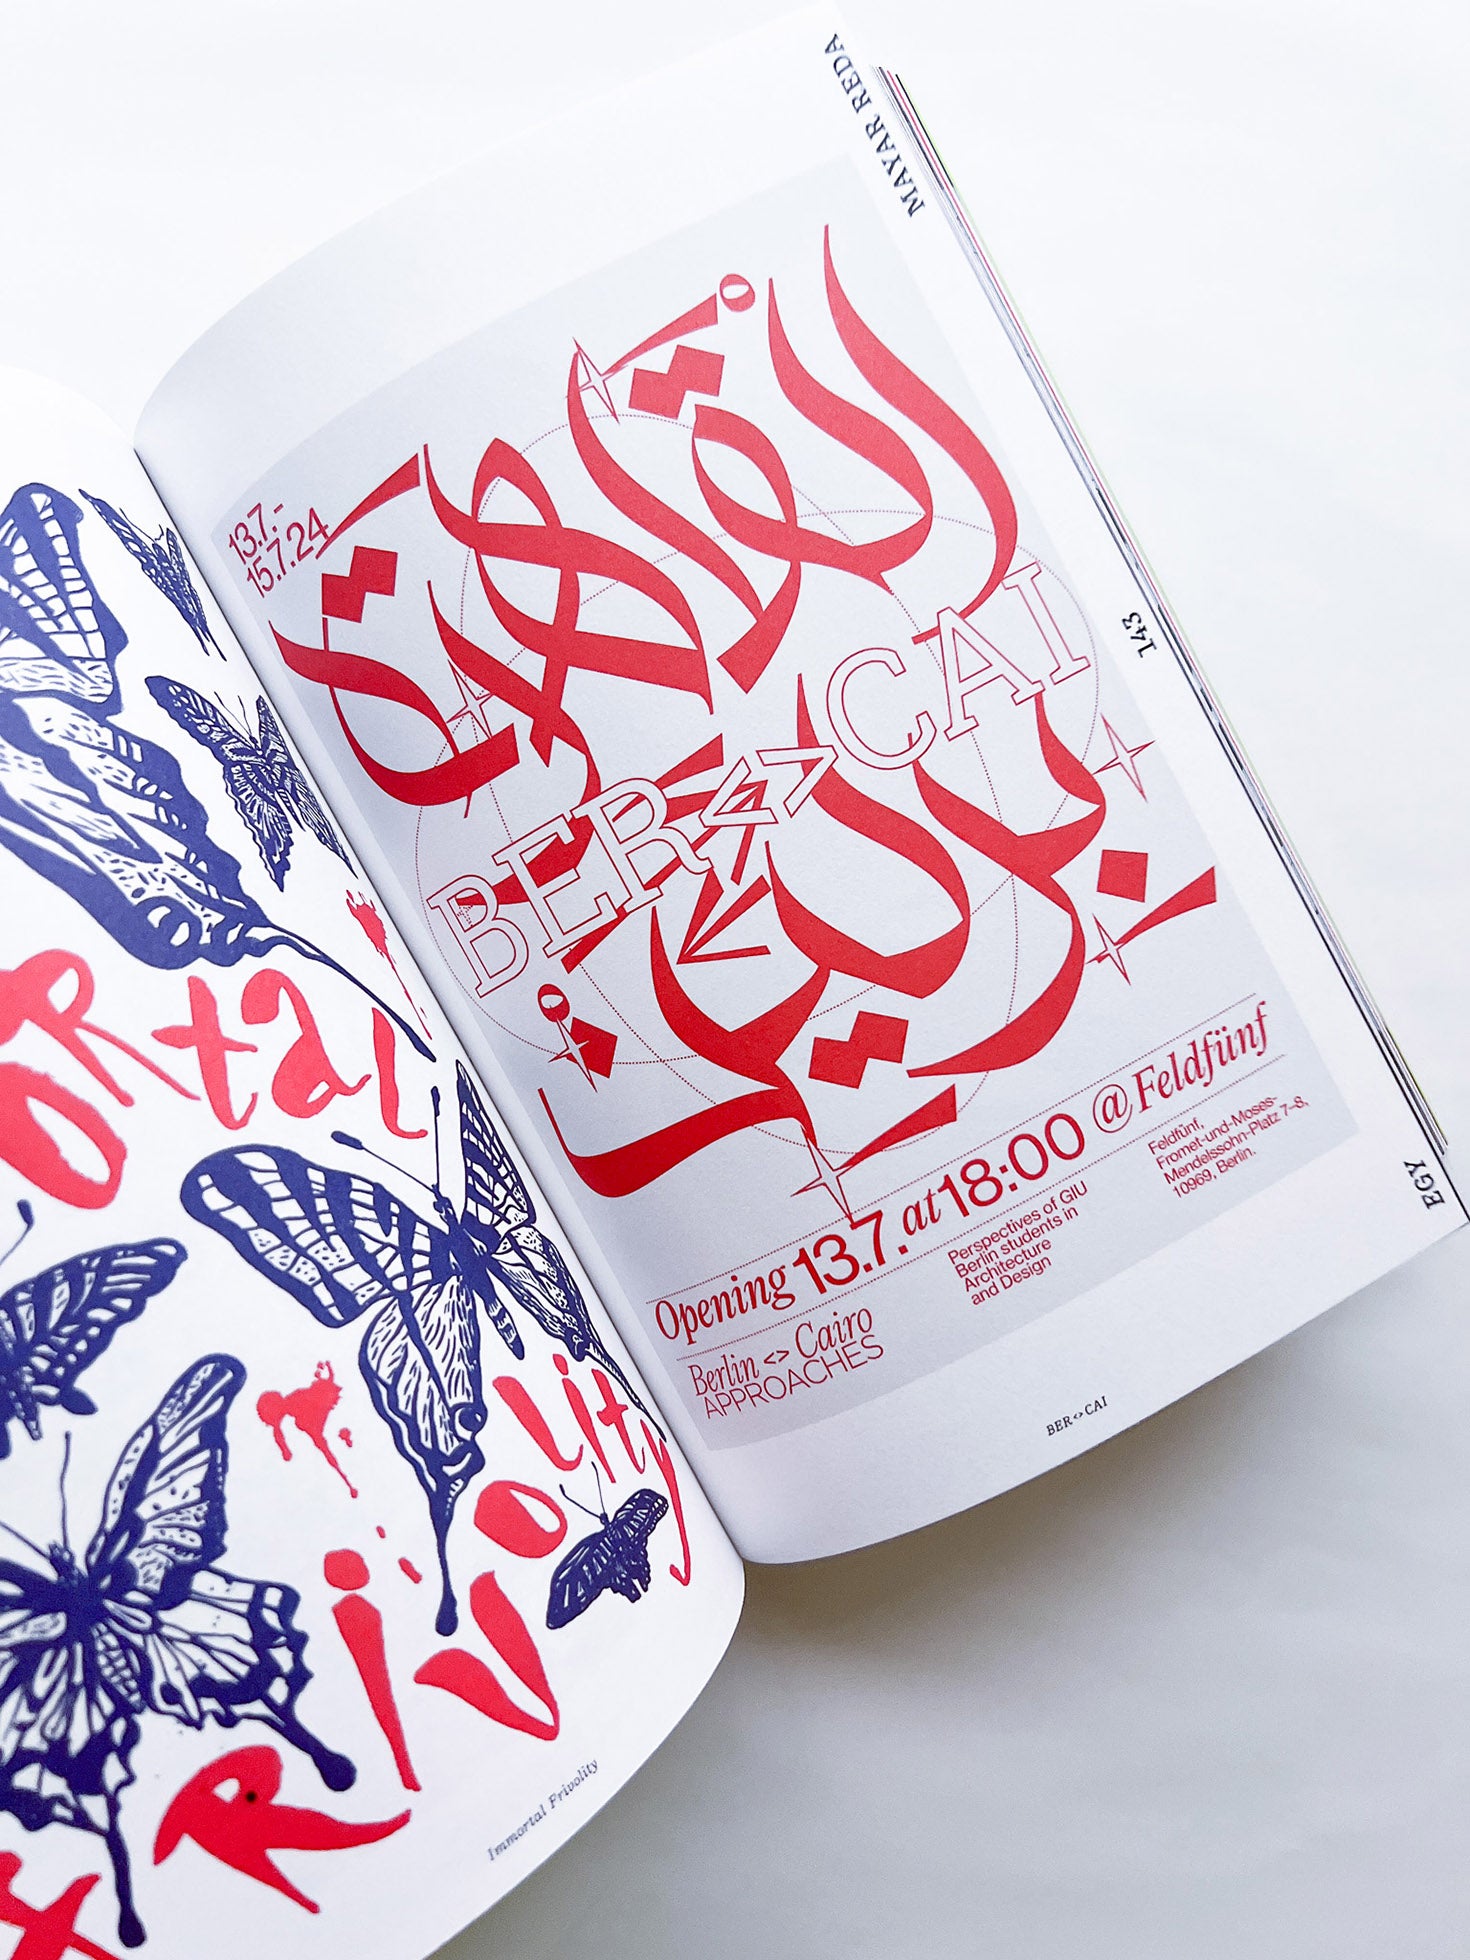 ORtal
FRivolity
Immortal Frivolity
MAYAR REDA
143
EGY
13.7.-
15.7.24
القاهرة
BER<>CAI
برلين
Opening 13.7. at 18:00 @ Feldfünf
Berlin <> Cairo
APPROACHES
Perspectives of GIU
Berlin students in
Architecture
and Design
Feldfünf,
Fromet-und-Moses-
Mendelssohn-Platz 7–8,
10969, Berlin.
BER<>CAI